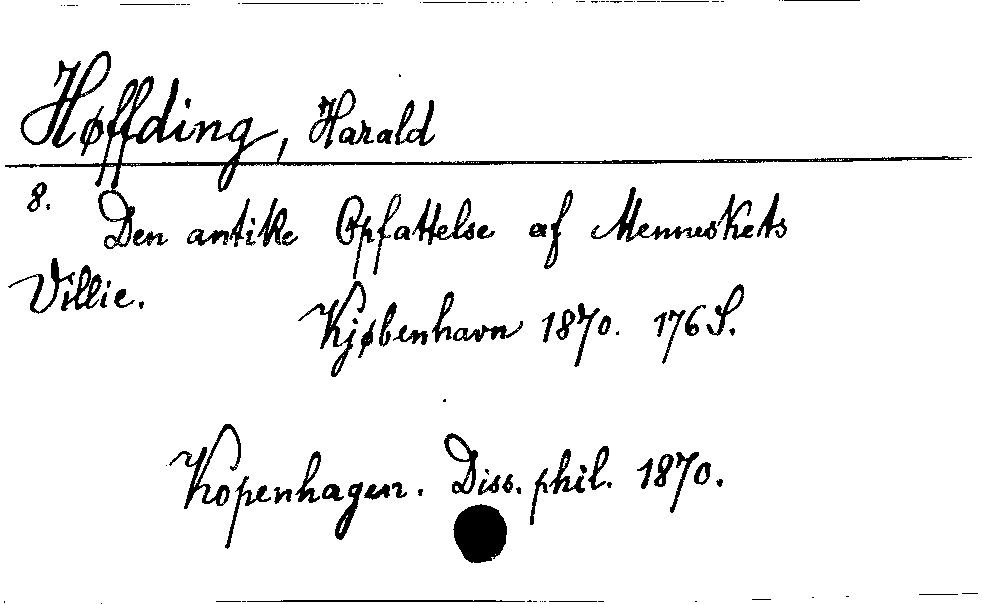 Høffding, Harald
8. Den antike Opfattelse af Menneskets
Villie.
Kjøbenhavn 1870. 176 S.
Kopenhagen. Diss. phil. 1870.